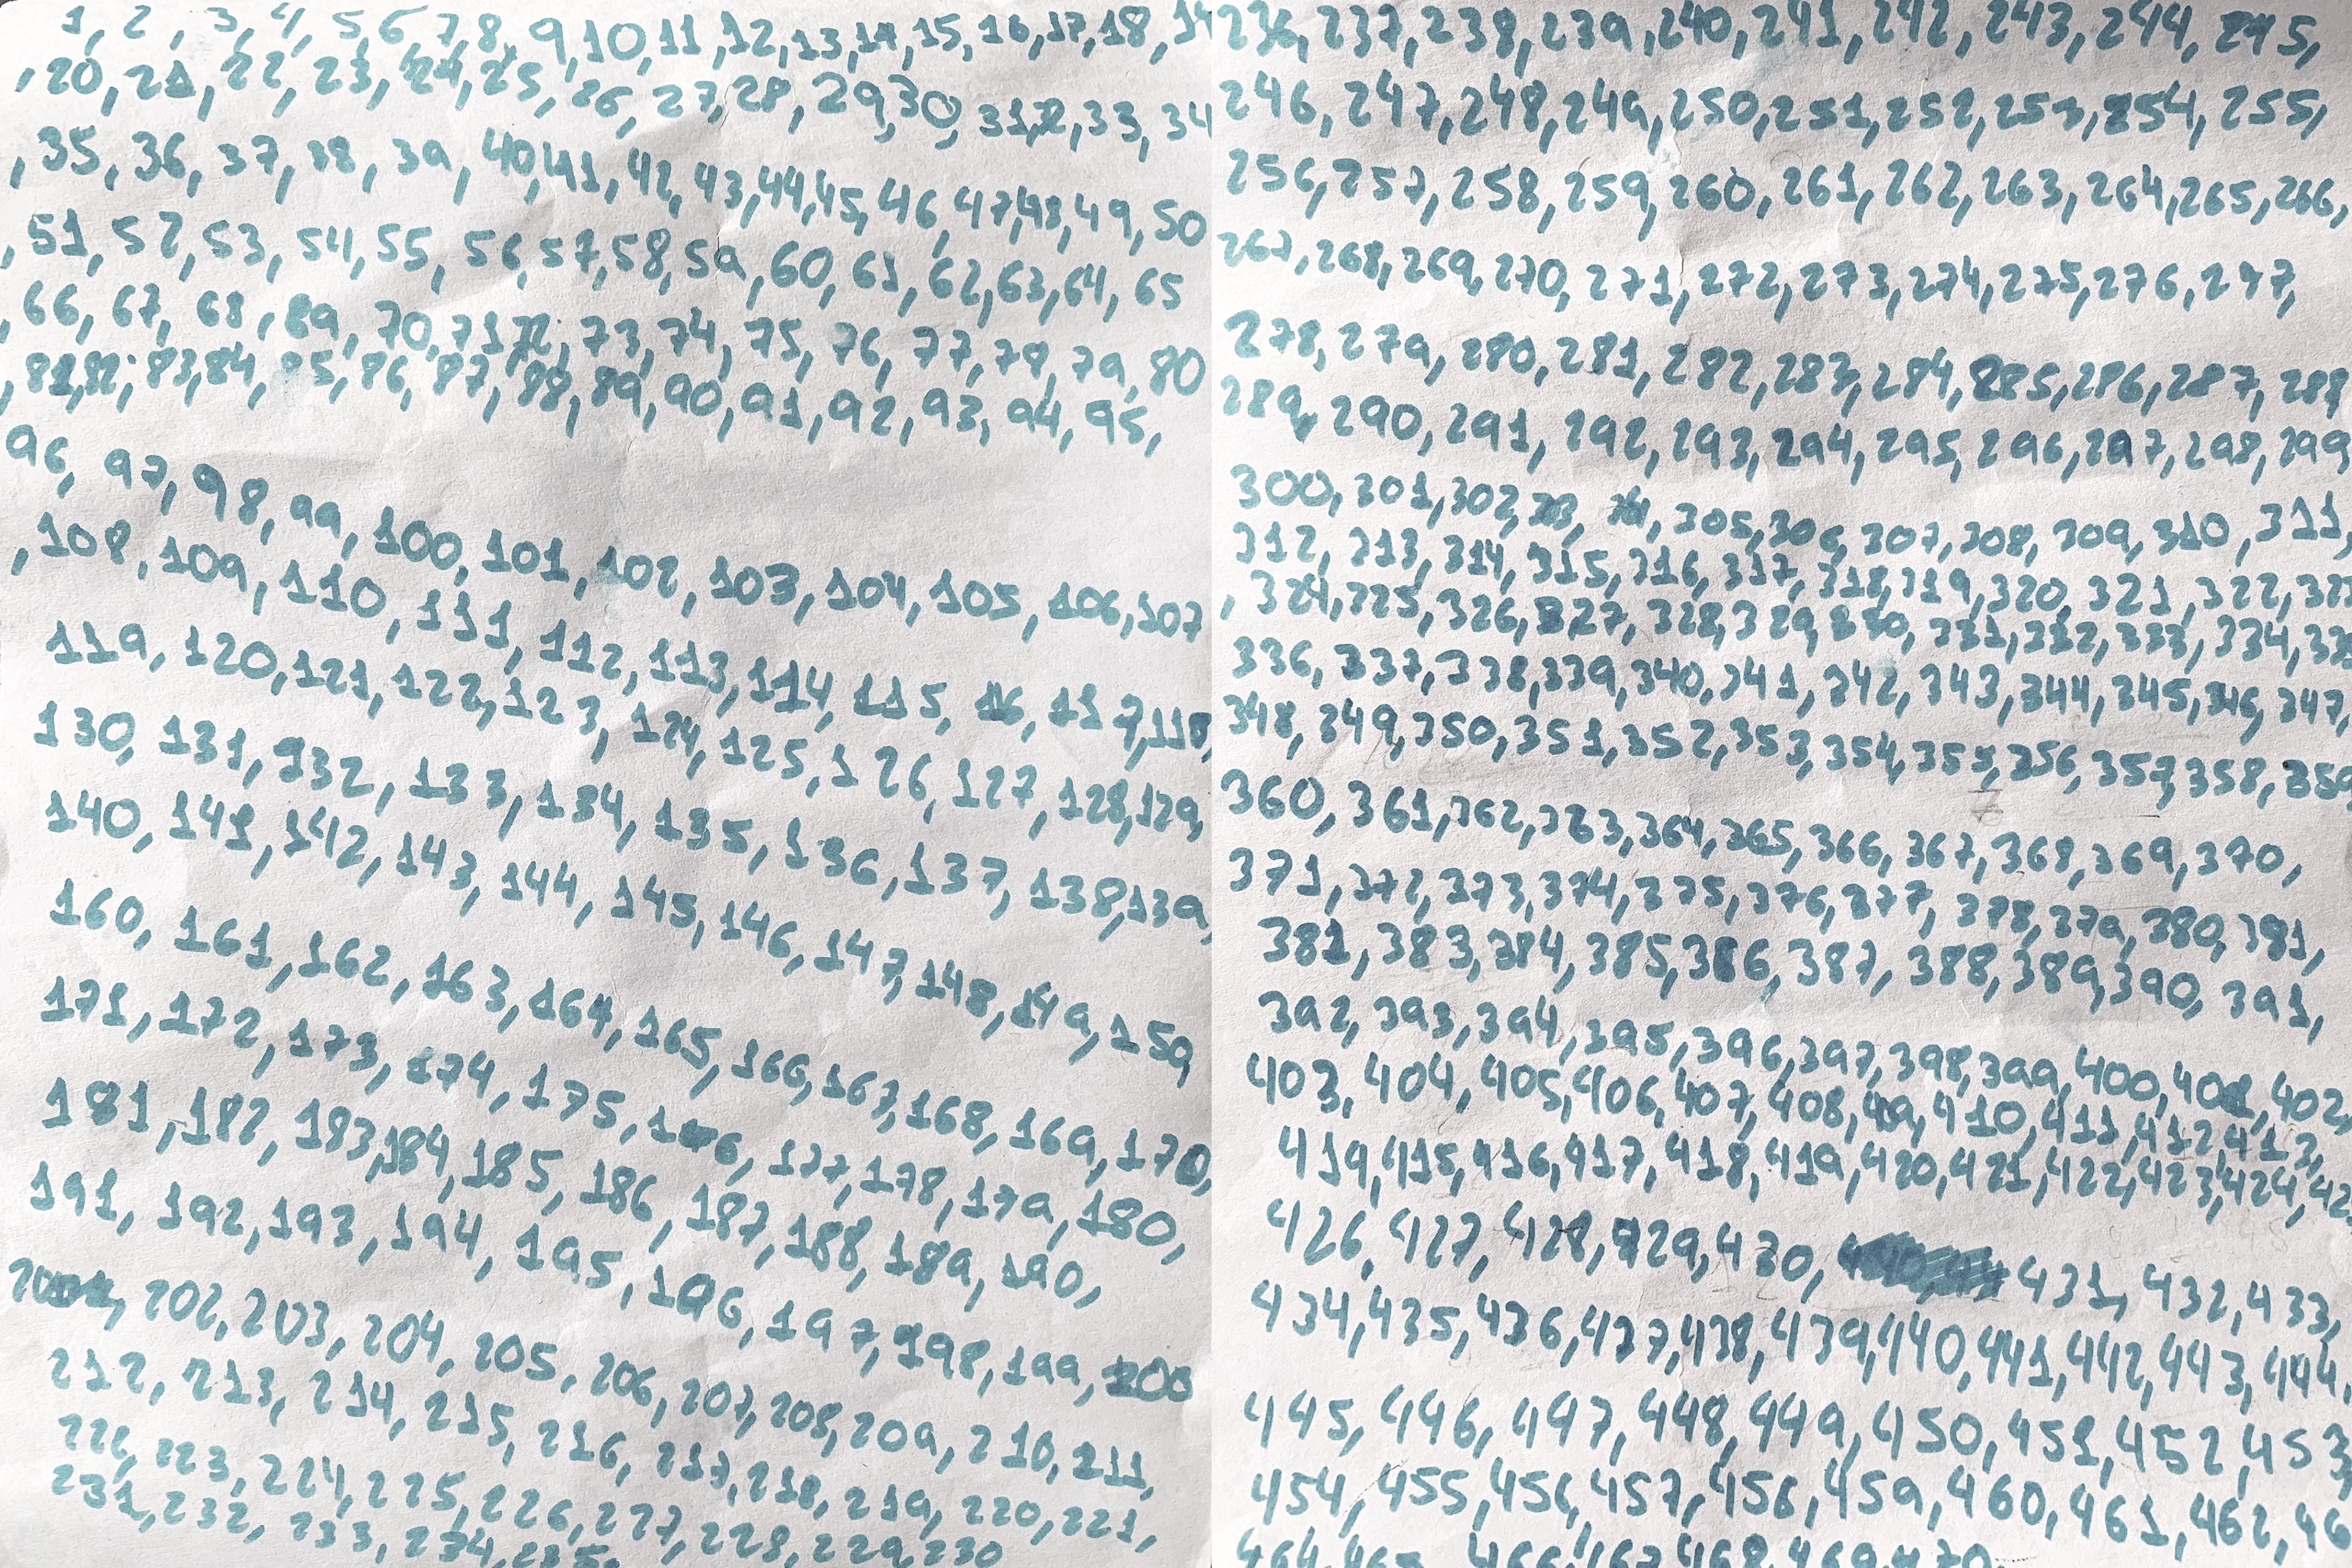 1, 2, 3, 4, 5, 6, 7, 8, 9, 10, 11, 12, 13, 14, 15, 16, 17, 18, 19
, 20, 21, 22, 23, 24, 25, 26, 27, 28, 29, 30, 31, 32, 33, 34
, 35, 36, 37, 38, 39, 40, 41, 42, 43, 44, 45, 46, 47, 48, 49, 50
, 51, 52, 53, 54, 55, 56, 57, 58, 59, 60, 61, 62, 63, 64, 65
, 66, 67, 68, 69, 70, 71, 72, 73, 74, 75, 76, 77, 78, 79, 80
, 81, 82, 83, 84, 85, 86, 87, 88, 89, 90, 91, 92, 93, 94, 95,
96, 97, 98, 99, 100, 101, 102, 103, 104, 105, 106, 107
, 108, 109, 110, 111, 112, 113, 114, 115, 116, 117, 118,
119, 120, 121, 122, 123, 124, 125, 126, 127, 128, 129,
130, 131, 132, 133, 134, 135, 136, 137, 138, 139,
140, 141, 142, 143, 144, 145, 146, 147, 148, 149, 159
160, 161, 162, 163, 164, 165, 166, 167, 168, 169, 170,
171, 172, 173, 174, 175, 176, 177, 178, 179, 180,
181, 182, 183, 184, 185, 186, 187, 188, 189, 190,
191, 192, 193, 194, 195, 196, 197, 198, 199, 200
202, 203, 204, 205, 206, 207, 208, 209, 210, 211,
212, 213, 214, 215, 216, 217, 218, 219, 220, 221,
222, 223, 224, 225, 226, 227, 228, 229, 230
231, 232, 233, 234, 235,
236, 237, 238, 239, 240, 241, 242, 243, 244, 245,
246, 247, 248, 249, 250, 251, 252, 253, 254, 255,
256, 257, 258, 259, 260, 261, 262, 263, 264, 265, 266,
267, 268, 269, 270, 271, 272, 273, 274, 275, 276, 277,
278, 279, 280, 281, 282, 283, 284, 285, 286, 287, 288
289, 290, 291, 292, 293, 294, 295, 296, 297, 298, 299
300, 301, 302, 305, 306, 307, 308, 309, 310, 311,
312, 313, 314, 315, 316, 317, 318, 319, 320, 321, 322, 323
, 324, 325, 326, 327, 328, 329, 330, 331, 332, 333, 334,
336, 337, 338, 339, 340, 341, 342, 343, 344, 345, 346, 347,
348, 349, 350, 351, 352, 353, 354, 355, 356, 357, 358, 359
360, 361, 362, 363, 364, 365, 366, 367, 368, 369, 370,
371, 372, 373, 374, 375, 376, 377, 378, 379, 380, 381,
381, 383, 384, 385, 386, 387, 388, 389, 390, 391,
392, 393, 394, 395, 396, 397, 398, 399, 400, 401, 402,
403, 404, 405, 406, 407, 408, 409, 410, 411, 412, 413,
414, 415, 416, 417, 418, 419, 420, 421, 422, 423, 424,
426, 427, 428, 429, 430, 431, 432, 433,
434, 435, 436, 437, 438, 439, 440, 441, 442, 443, 444,
445, 446, 447, 448, 449, 450, 451, 452, 453
454, 455, 456, 457, 456, 459, 460, 461, 462,
464, 465, 466, 467, 468, 469, 470,